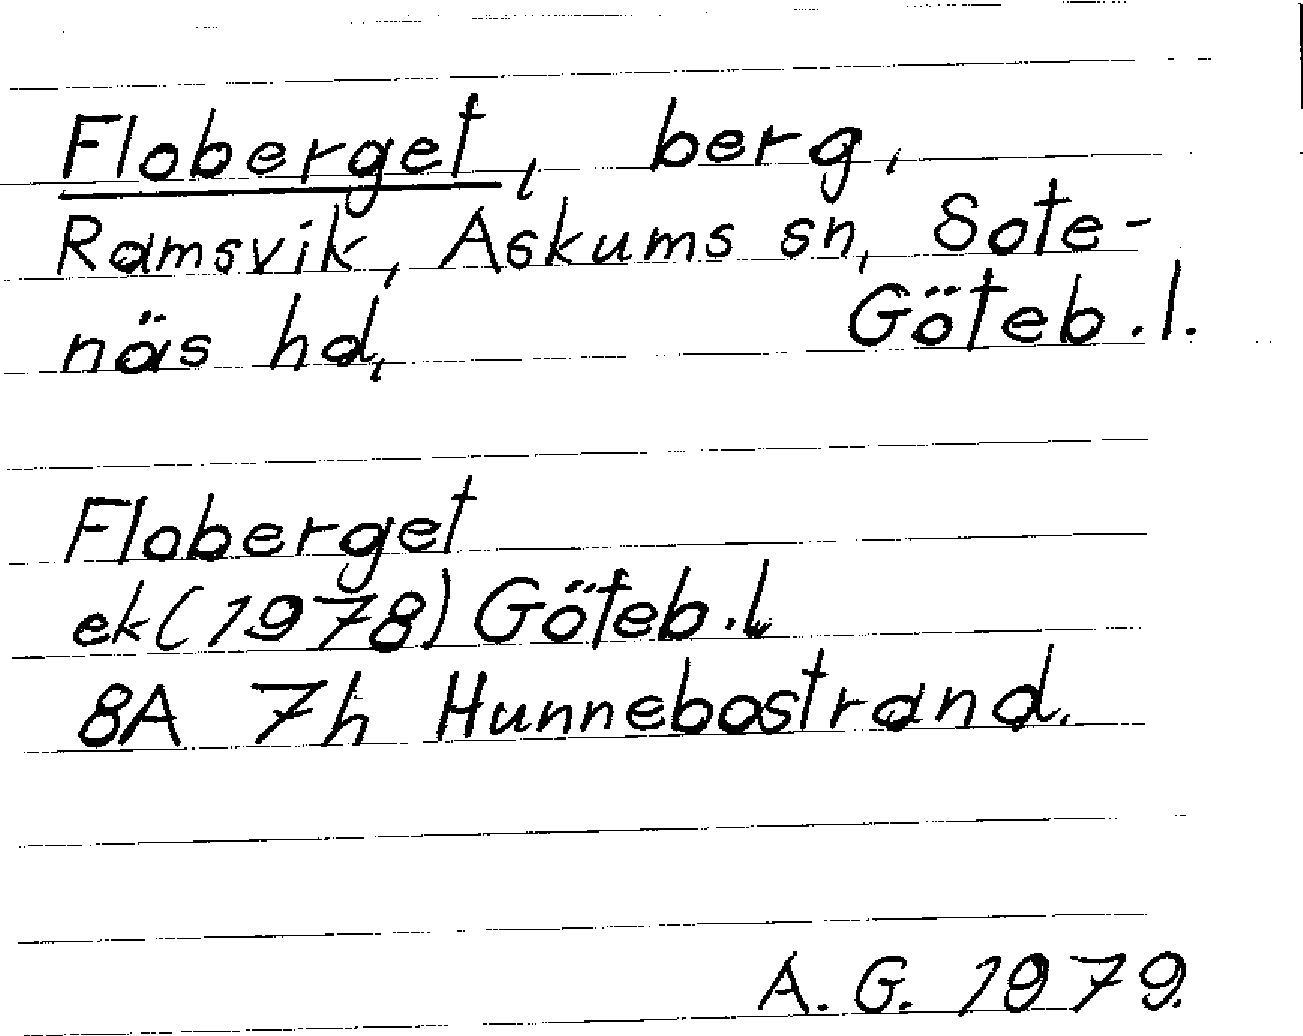 Floberget, berg,
Ramsvik, Askums sn, Sote-
näs hd, Göteb.l.
Floberget
ek(1978) Göteb.l
8A 7h Hunnebostrand.
A. G. 1979.